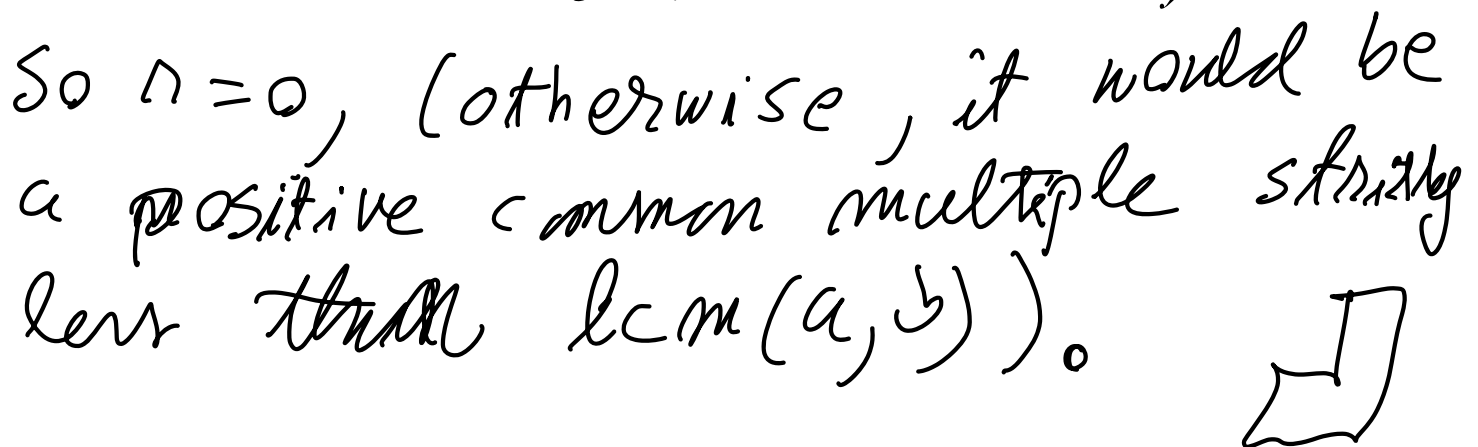 So r = 0, (otherwise, it would be
a positive common multiple strictly
less than lcm(a,b)).